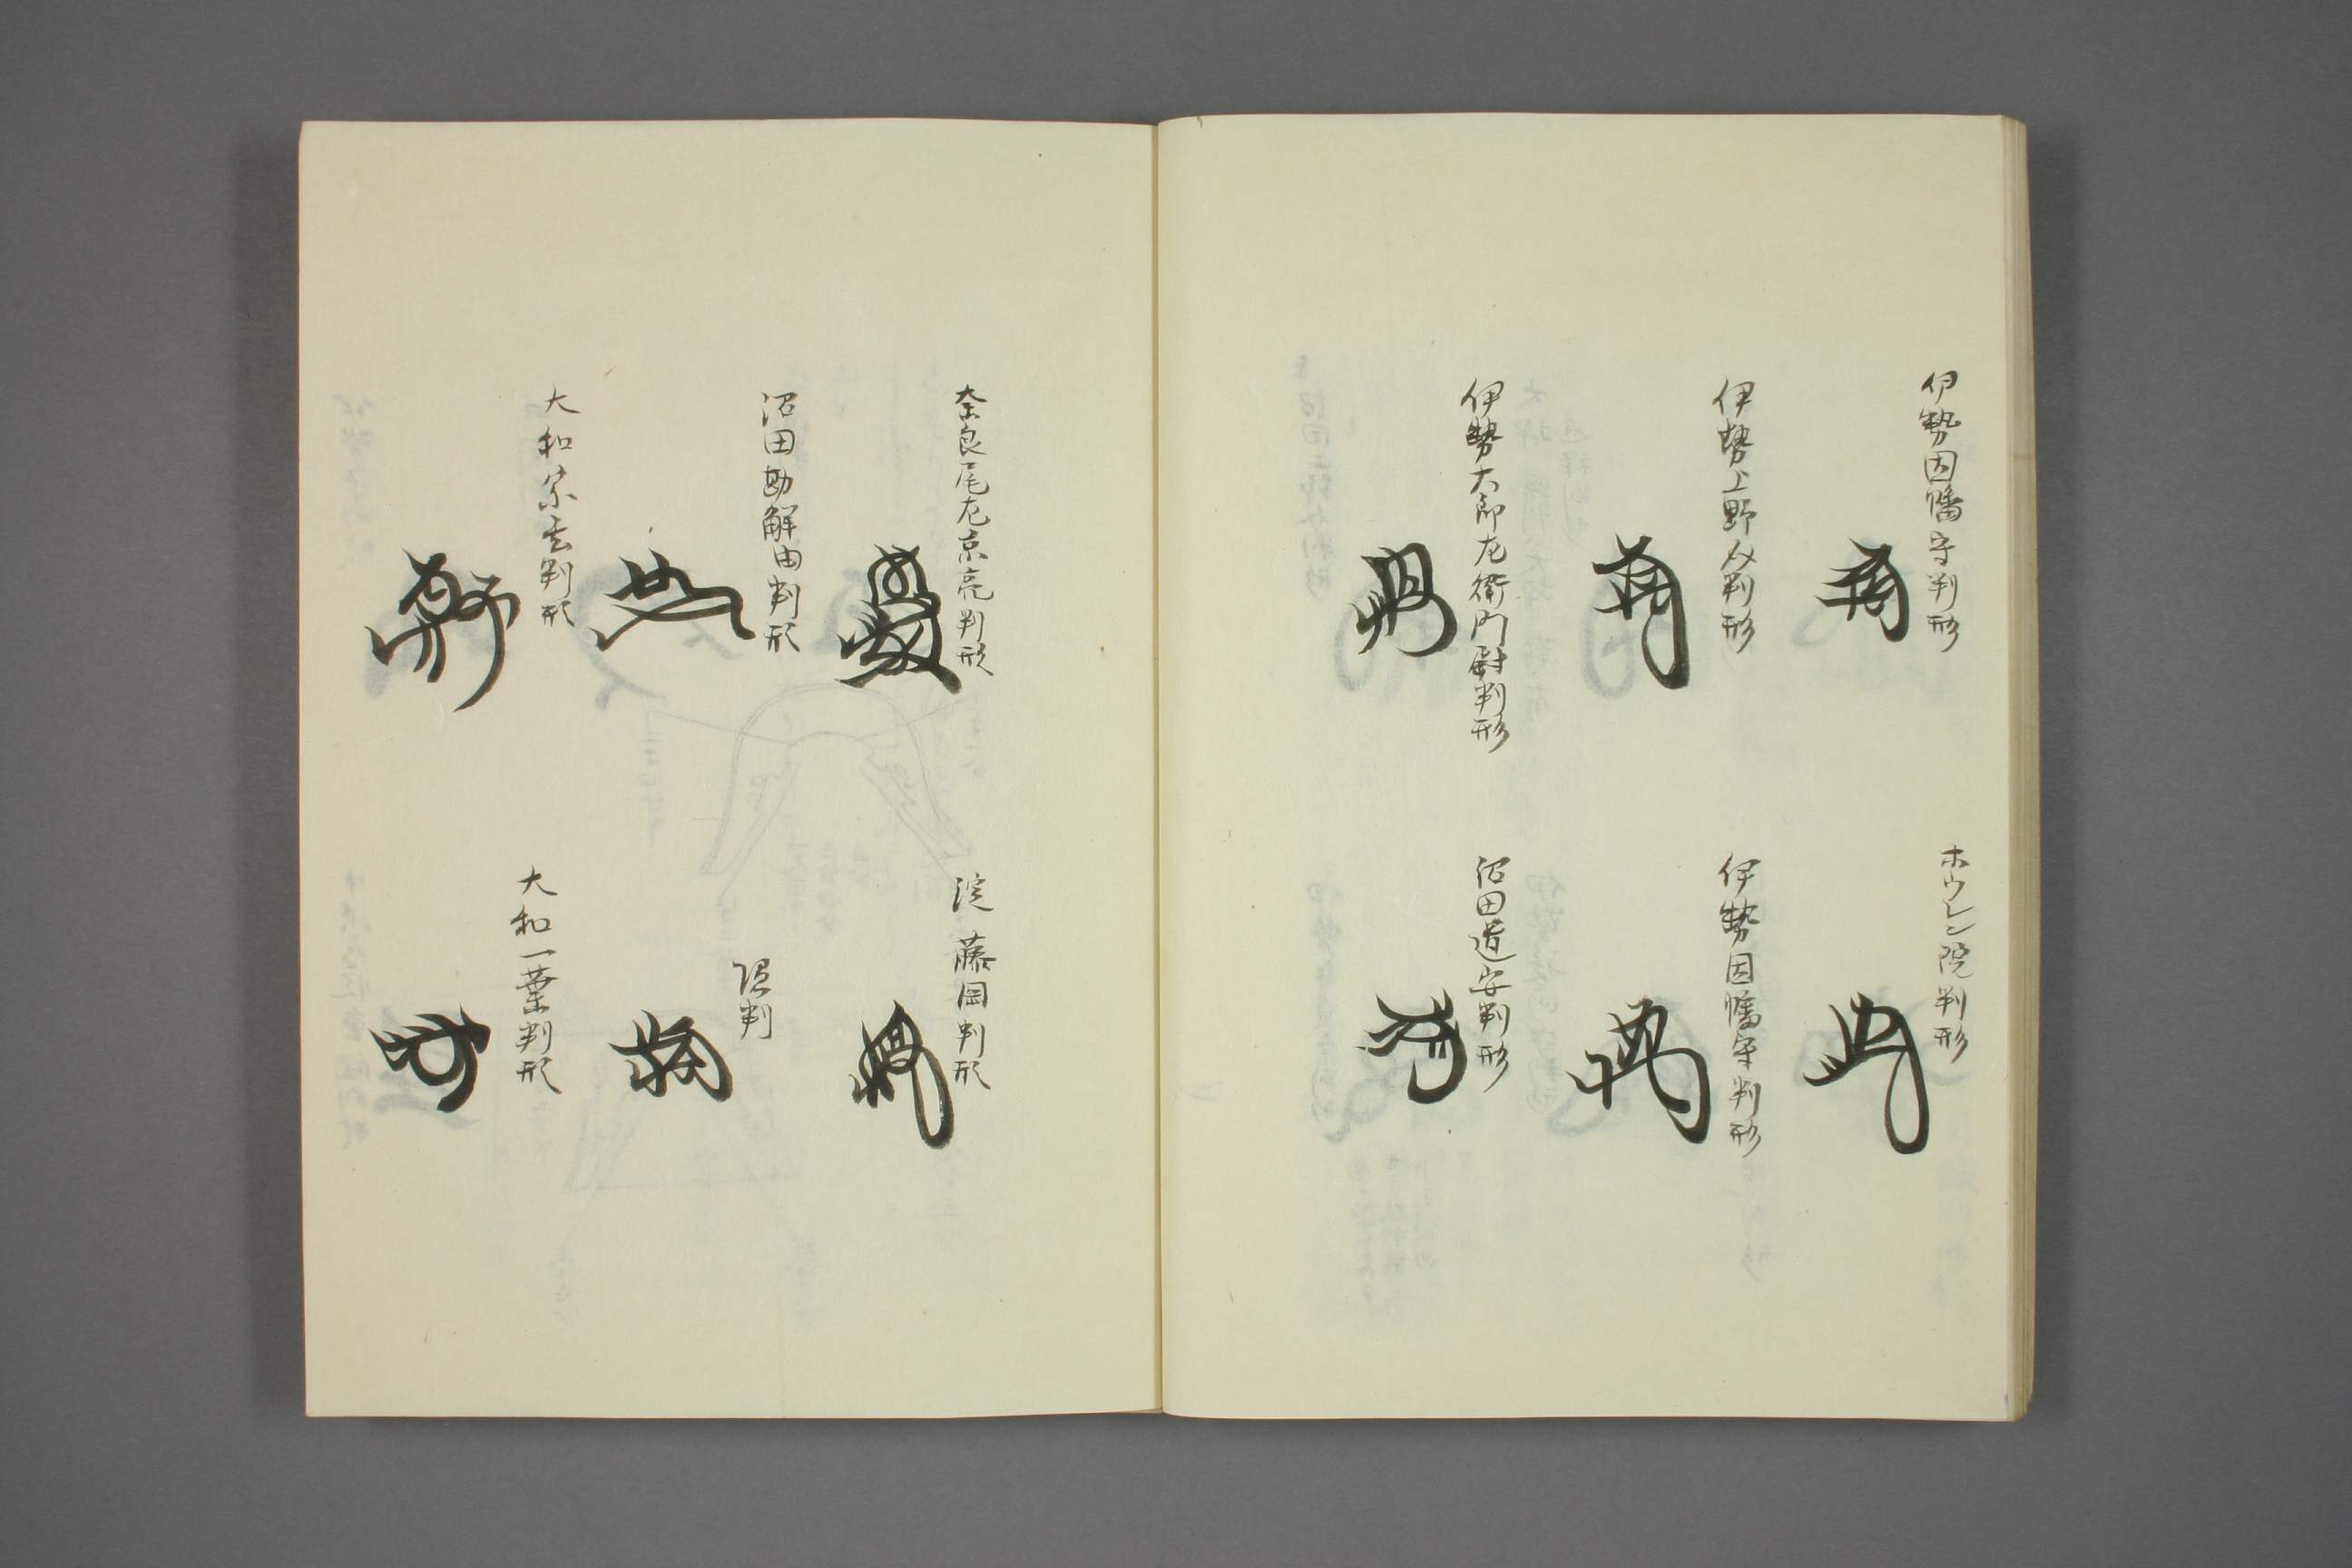 伊勢因幡守判形
ホウレン院判形
伊勢上野介判形
伊勢因幡守判形
伊勢大郎左衛門尉判形
沼田道安判形
奈良尾左京亮判形
淀藤岡判形
沼田勘解由判形
隠判
大和宗去判形
大和一葉判形